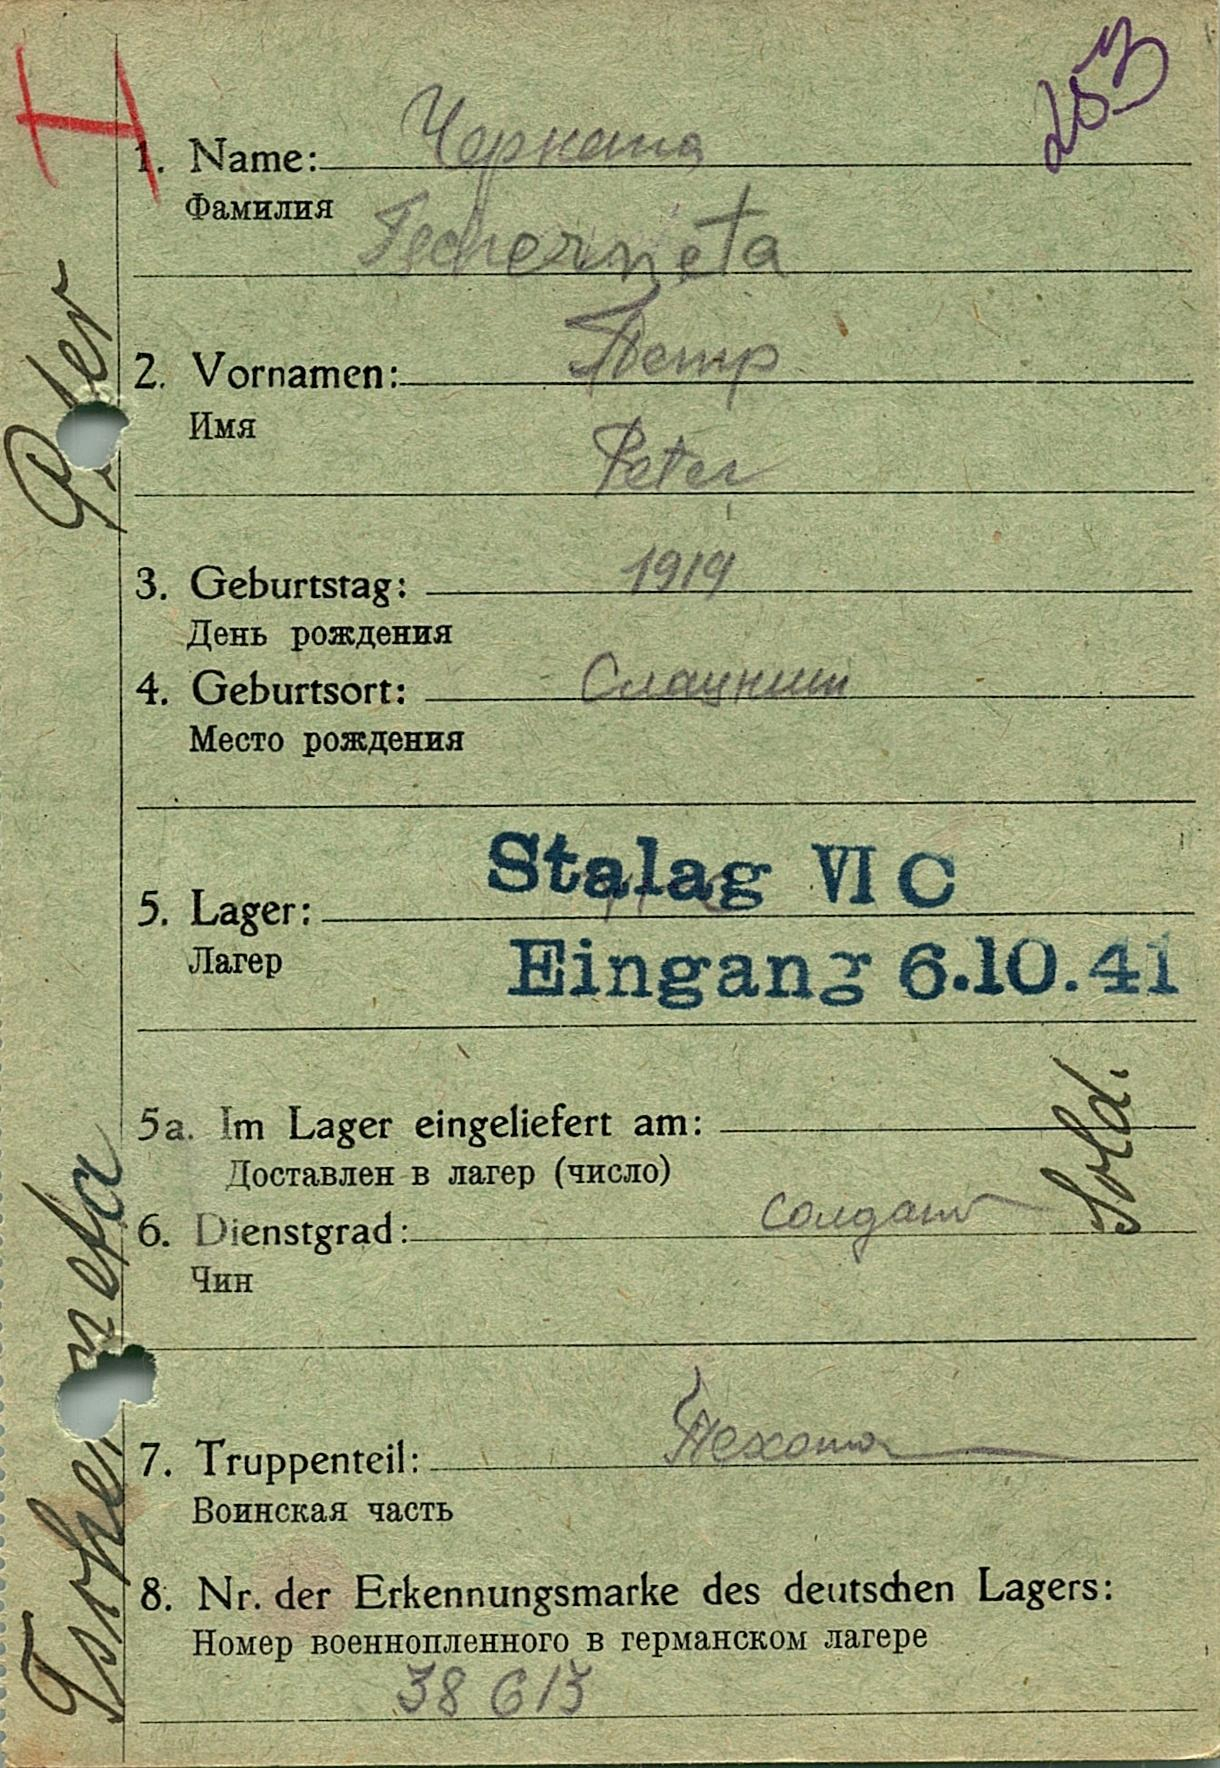 253
1. Name: Черната
Фамилия
Tscherneta
2. Vornamen: Петр
Имя
Peter
3. Geburtstag: 1919
День рождения
4. Geburtsort:
Место рождения
Stalag VI C
5. Lager:
Лагер
Eingang 6.10.41
5a. Im Lager eingeliefert am:
Доставлен в лагер (число)
Sold.
6. Dienstgrad: солдат
Чин
7. Truppenteil: Пехота
Воинская часть
8. Nr. der Erkennungsmarke des deutschen Lagers:
Номер военнопленного в германском лагере
38613
Tscherneta Peter